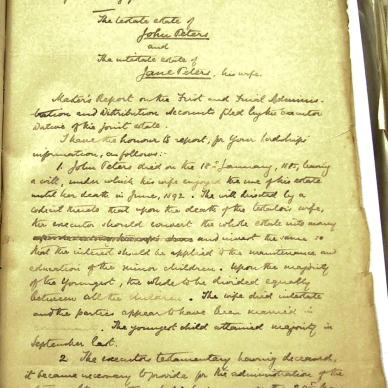 The testate estate of
John Peters
and
The intestate estate of
Jane Peters, his wife.
Master's Report on the First and Final Adminis-
tration and Distribution Accounts filed by the Executor
Dative of the joint estate.
I have the honour to report, for Your Lordships'
information, as follows:
1. John Peters died on the 18th January, 1885, leaving
a will, under which his wife enjoyed the use of his estate
until her death in June, 1892. The will directed by a
that upon the death of the testator's wife,
the executor should convert the whole estate into money
and invest the same so
that the interest should be applied to the maintenance and
education of the minor children. Upon the majority
of the Youngest, the whole to be divided equally
between all the children. The wife died intestate
and the parties appear to have been married in
. The youngest child attained majority in
September last.
2 The executors testamentary having deceased,
it became necessary to provide for the administration of the